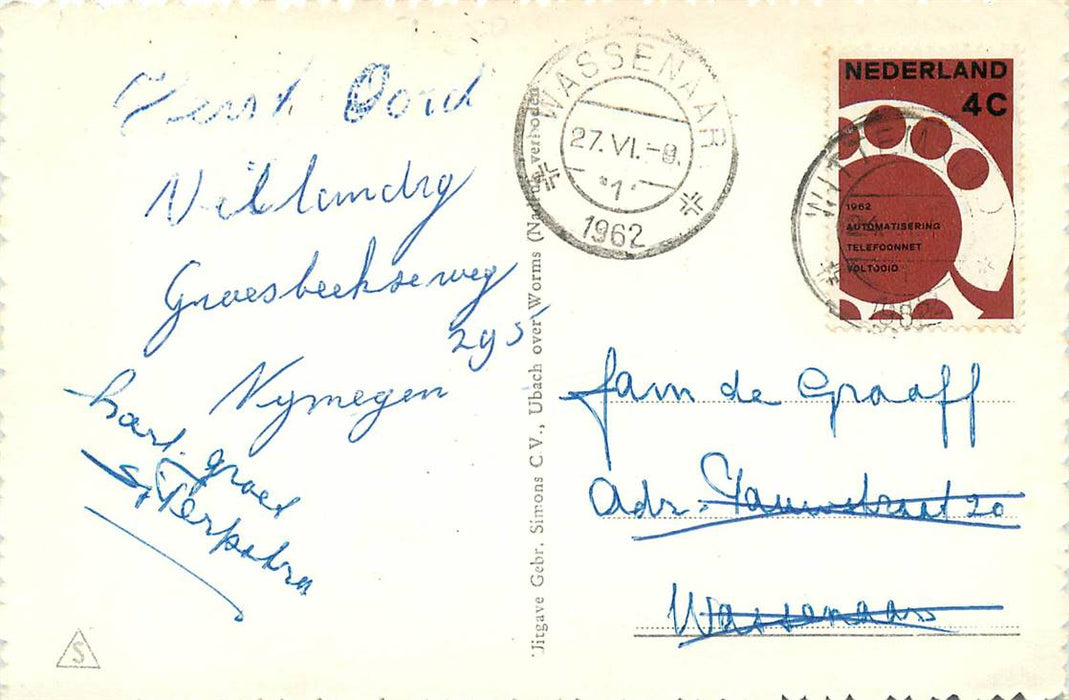 Oord
Groesbeekseweg
295
Nymegen
hart. groet
S. Terpstra
Uitgave Gebr. Simons C.V., Ubach over Worms (Nadruk verboden)
WASSENAAR
27.VI.-9.
1
1962
NEDERLAND
4C
1962
AUTOMATISERING
TELEFOONNET
VOLTOOID
WITTEM
fam de Graaff
adr:
20
Wassenaar
S